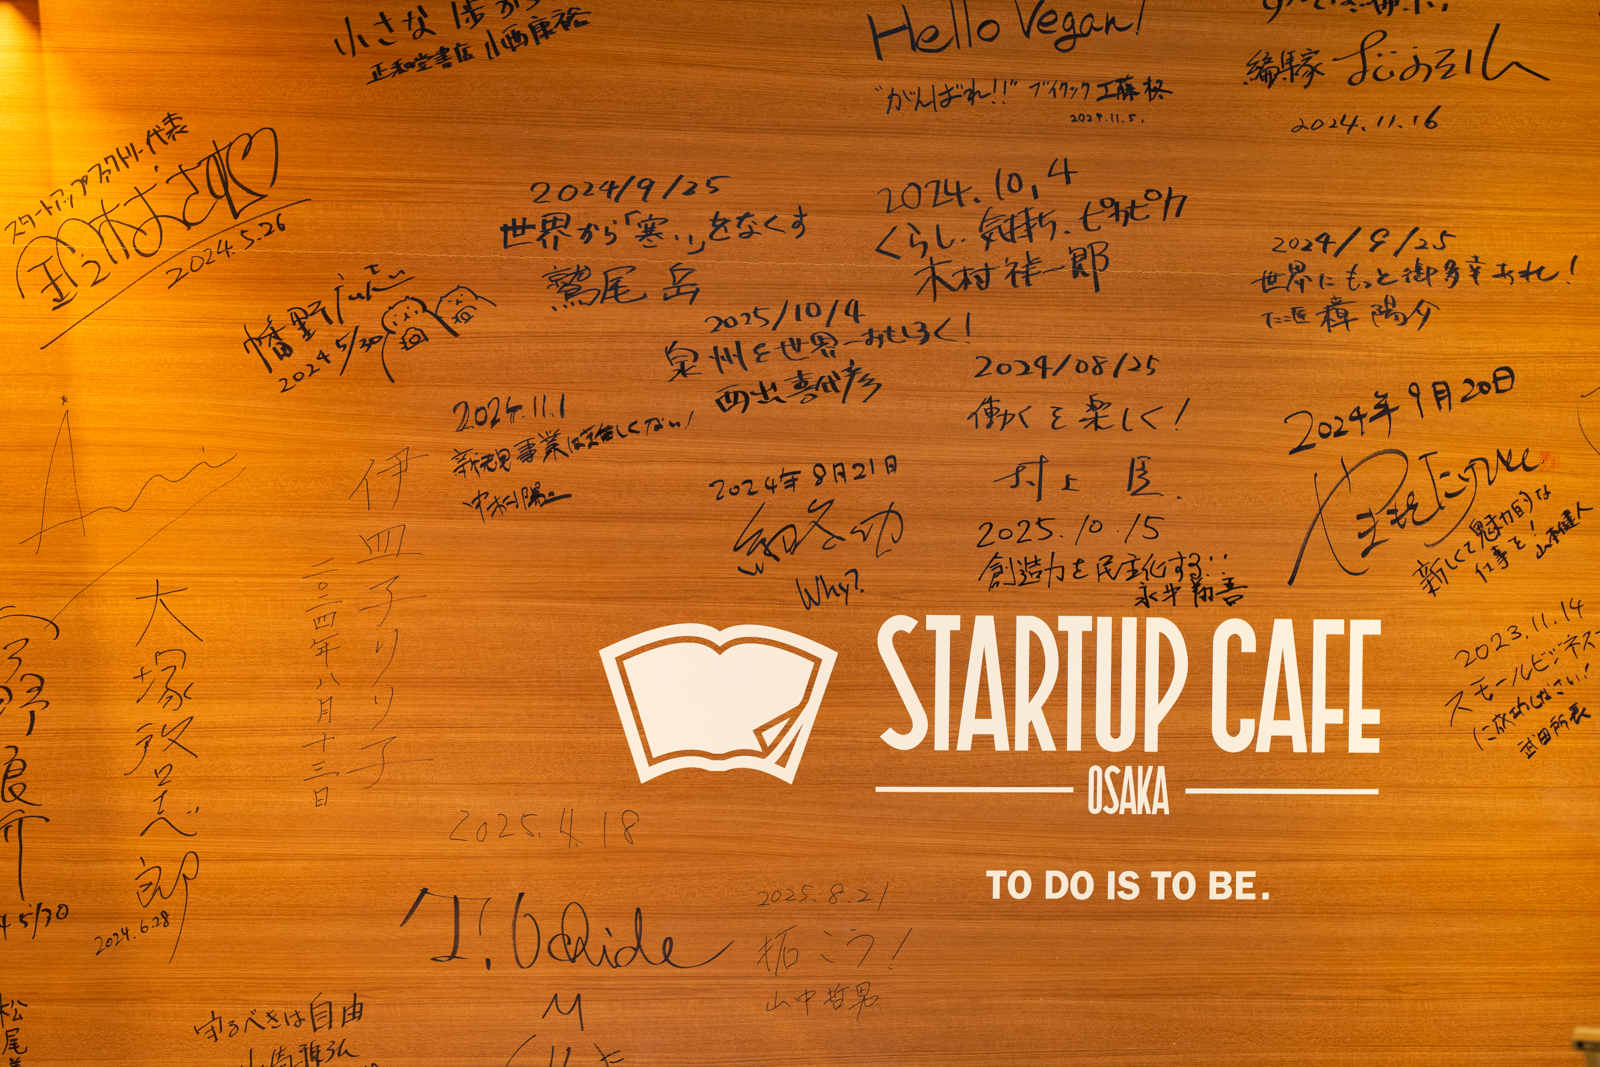 小さな
正和堂書店 小西康裕
Hello Vegan!
"がんばれ!!" ブイクック 工藤柊
2024.11.5.
編集家
2024.11.16
スタートアップファクトリー代表
2024.5.26
2024/9/25
世界から「寒い」をなくす
鷲尾 岳
2024.10.4
くらし、気持ち、ピカピカ
木村祥一郎
2024/9/25
世界にもっと御多幸あれ!
陽介
幡野
2024 5/30
2025/10/4
泉州を世界一おもしろく!
西出喜代彦
2024/08/25
働くを楽しく!
村上
2024年9月20日
2024.11.1
新規事業は難しくない!
2024年8月21日
Why?
2025.10.15
創造力を民主化する!!
永井翔吾
新しくて魅力的な
仕事を!
山本健人
伊四子りり子
二〇二四年八月十三日
2023.11.14
スモールビジネス
に成功しなさい!
武田所長
STARTUP CAFE
OSAKA
TO DO IS TO BE.
大塚
郎
2024.6.28
野良介
5/30
2025.4.18
2025.8.21
拓こう!
山中哲男
守るべきは自由
松尾